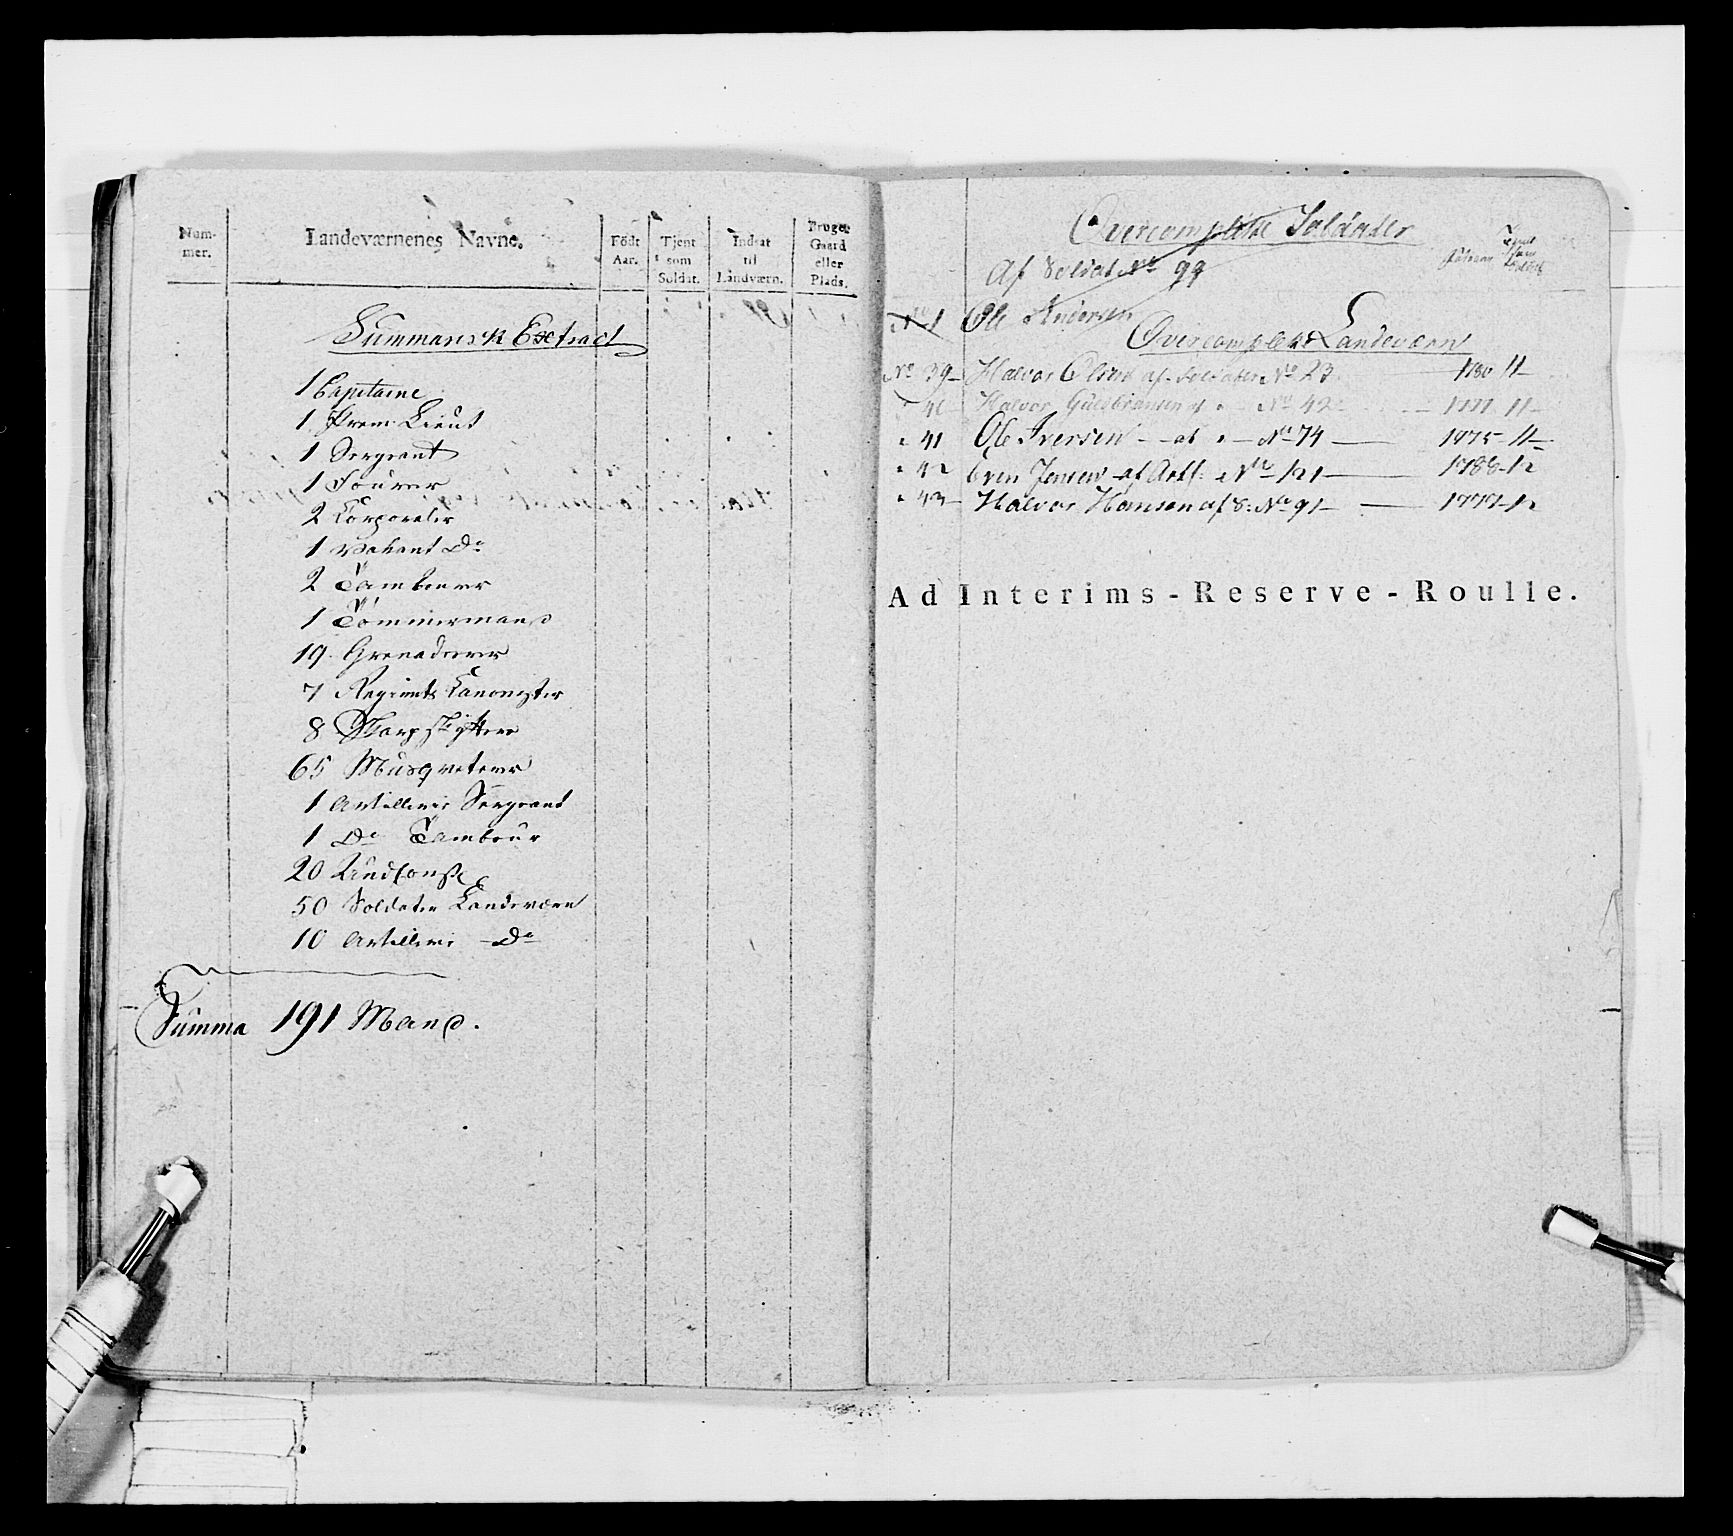 Num-
mer.
Landeværnenes Navne.
Födt
Aar.
Tjent
som
Soldat.
Indsat
til
Landværn.
Bruger
Gaard
eller
Plads.
Summarisk Extract
1 Capitaine
1 Prem: Lieut
1 Sergeant
1 Fourer
2 Corporaler
1 Vakant Do
2 Tambourer
1 Tömmermand
19 Grenaderer
7 Regiments Canonister
8 Skarpskyttere
65 Musqveterer
1 Artillerie Sergeant
1 Do Tambour
20 Landconst
50 Soldater Landeværn
10 Artillerie Do
Summa 191 Mand.
Overcomplete Soldater
Af Soldat No 99
Födt Aar Tjent som Soldat
No 1 Ole Andersen
Overcomplete Landeværn
No 39 Halvor Olsen af Soldater No 23 1780 11
" 40 Halvor Guldbransen af " No 42 1777 11
" 41 Ole Iversen af " No 74 1775 11
" 42 Even Jensen af Artl: No 121 1788 12
" 43 Halvor Hansen af S: No 91 1777 12
Ad Interims-Reserve-Roulle.